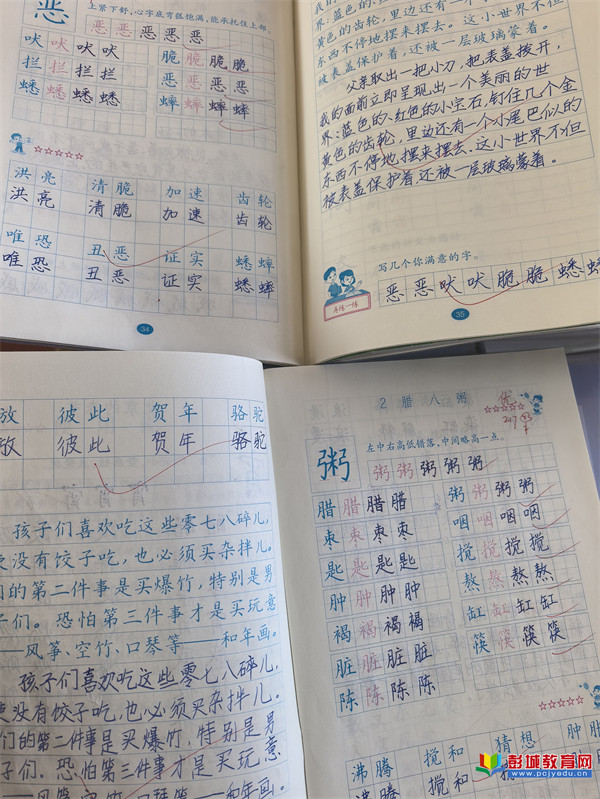 恶
上紧下舒,心字底弯弧饱满,能承托住上部。
恶 恶 恶 恶 恶
吠 吠 吠 吠
脆 脆 脆 脆
拦 拦 拦 拦
恶 恶 恶 恶
蟋 蟋 蟋 蟋
蟀 蟀 蟀 蟀
洪亮 清脆 加速 齿轮
洪亮 清脆 加速 齿轮
唯恐 丑恶 证实 蟋蟀
唯恐 丑恶 证实 蟋蟀
34
界:蓝色的、红色的小宝石,钉住几个金
黄色的齿轮,里边还有一个小尾巴似的
东西不停地摆来摆去。这小世界不但
被表盖保护着,还被一层玻璃蒙着。
父亲取出一把小刀,把表盖拨开,
我的面前立即呈现出一个美丽的世
界:蓝色的、红色的小宝石,钉住几个金
黄色的齿轮,里边还有一个小尾巴似的
东西不停地摆来摆去。这小世界不但
被表盖保护着,还被一层玻璃蒙着。
写几个你满意的字。
恶 恶 吠 吠 脆 脆 蟋
再练一练
35
放 彼此 贺年 骆驼
放 彼此 贺年 骆驼
孩子们喜欢吃这些零七八碎儿,
没有饺子吃,也必须买杂拌儿。
们的第二件事是买爆竹,特别是男
子们。恐怕第三件事才是买玩意
——风筝、空竹、口琴等——和年画。
孩子们喜欢吃这些零七八碎儿,
没有饺子吃,也必须买杂拌儿。
们的第二件事是买爆竹,特别是男
子们。恐怕第三件事才是买玩意
——风筝、空竹、口琴等——和年画。
2 腊八粥
优
粥
左中右高低错落,中间略高一点。
粥 粥 粥 粥 粥
腊 腊 腊 腊
粥 粥 粥 粥
枣 枣 枣 枣
咽 咽 咽 咽
匙 匙 匙 匙
搅 搅 搅 搅
肿 肿 肿 肿
熬 熬 熬 熬
褐 褐 褐 褐
缸 缸 缸 缸
脏 脏 脏 脏
筷 筷 筷 筷
陈 陈 陈 陈
沸腾 搅和 猜想 肿胀
沸腾 搅和
彭城教育网
www.pcjyedu.cn